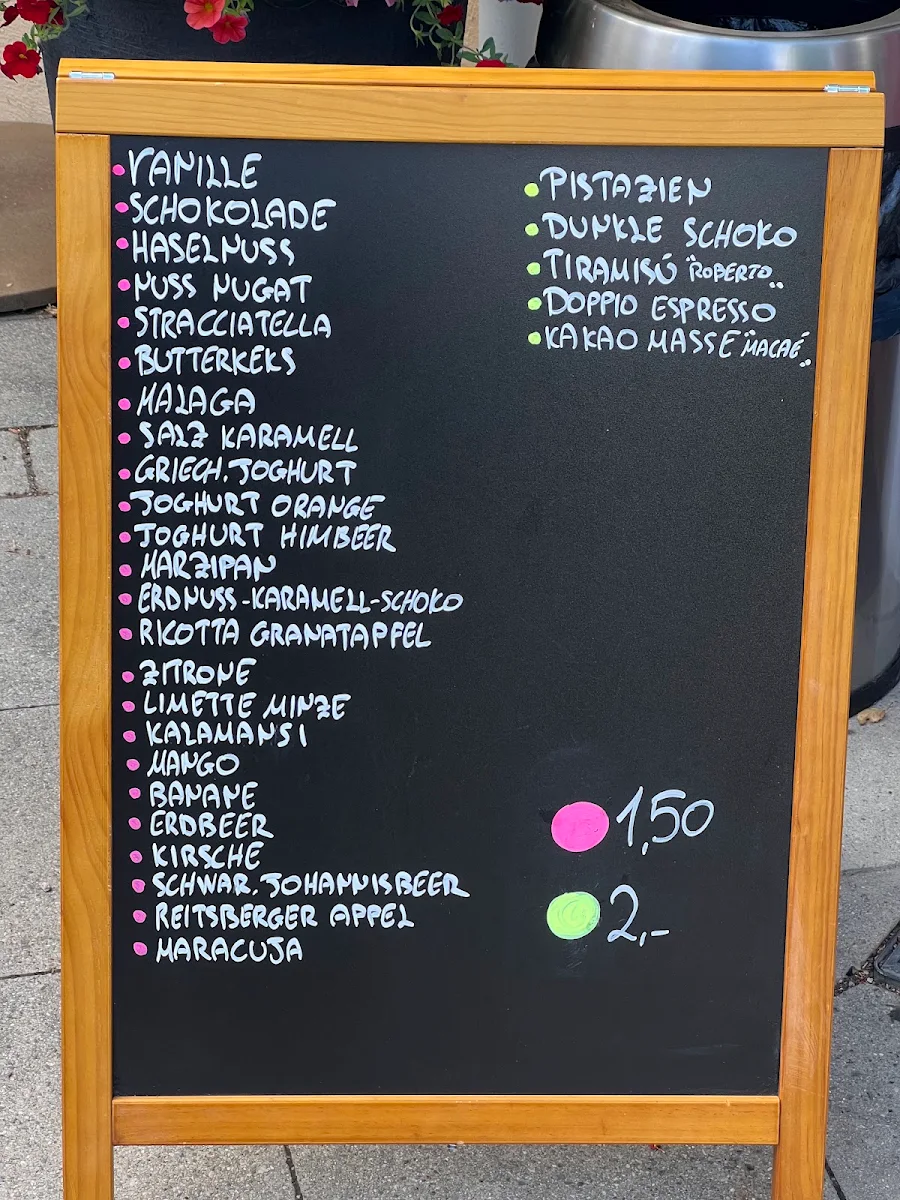 VANILLE
SCHOKOLADE
HASELNUSS
NUSS NUGAT
STRACCIATELLA
BUTTERKEKS
MALAGA
SALZ KARAMELL
GRIECH. JOGHURT
JOGHURT ORANGE
JOGHURT HIMBEER
MARZIPAN
ERDNUSS-KARAMELL-SCHOKO
RICOTTA GRANATAPFEL
ZITRONE
LIMETTE MINZE
KALAMANSI
MANGO
BANANE
ERDBEER
KIRSCHE
SCHWAR. JOHANNISBEER
REITSBERGER APPEL
MARACUJA
PISTAZIEN
DUNKLE SCHOKO
TIRAMISÚ "ROBERTO"
DOPPIO ESPRESSO
KAKAO MASSE "MACAÉ"
1,50
2,-